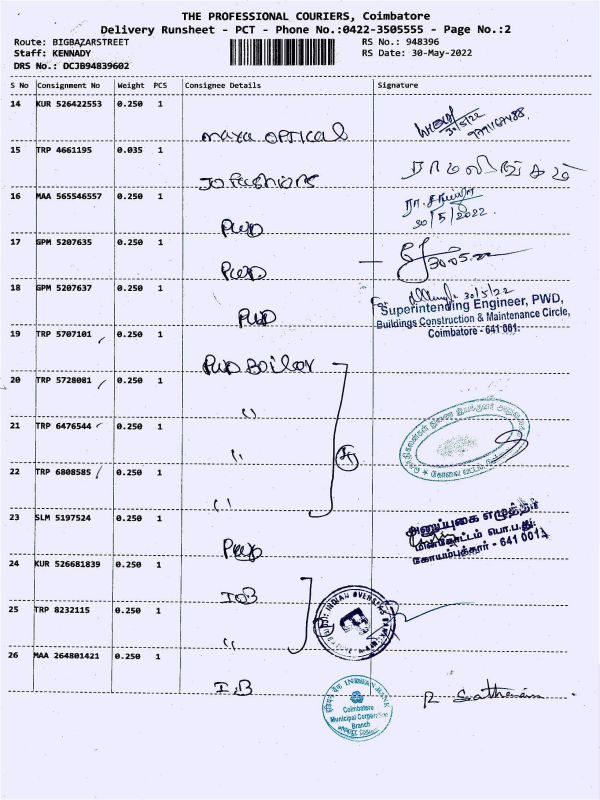 THE PROFESSIONAL COURIERS, Coimbatore
Delivery Runsheet - PCT - Phone No.:0422-3505555 - Page No.:2
Route: BIGBAZARSTREET RS No.: 948396
Staff: KENNADY RS Date: 30-May-2022
DRS No.: DCJB94839602
S No Consignment No Weight PCS Consignee Details Signature
14 KUR 526422553 0.250 1
maxa OPTICAL 30/5/22
15 TRP 4661195 0.035 1
Jo Fashions ராமலிங்கம்
16 MAA 565546557 0.250 1
PWD 30/5/2022.
17 GPM 5207635 0.250 1
PWD 30.05.22
18 GPM 5207637 0.250 1
PWD For 30/5/22
Superintending Engineer, PWD,
Buildings Construction & Maintenance Circle,
Coimbatore - 641 001.
19 TRP 5707101 0.250 1
PWD Boiler
20 TRP 5728081 0.250 1
"
21 TRP 6476544 0.250 1
"
22 TRP 6808585 0.250 1
"
23 SLM 5197524 0.250 1
PWD
மின்தோட்டம் பொ.ப.து.
கோயம்புத்தூர் - 641 001
24 KUR 526681839 0.250 1
IOB
INDIAN OVERSEAS BANK
25 TRP 8232115 0.250 1
"
26 MAA 264801421 0.250 1
I.B
INDIAN BANK
Coimbatore
Municipal Corporation
Branch